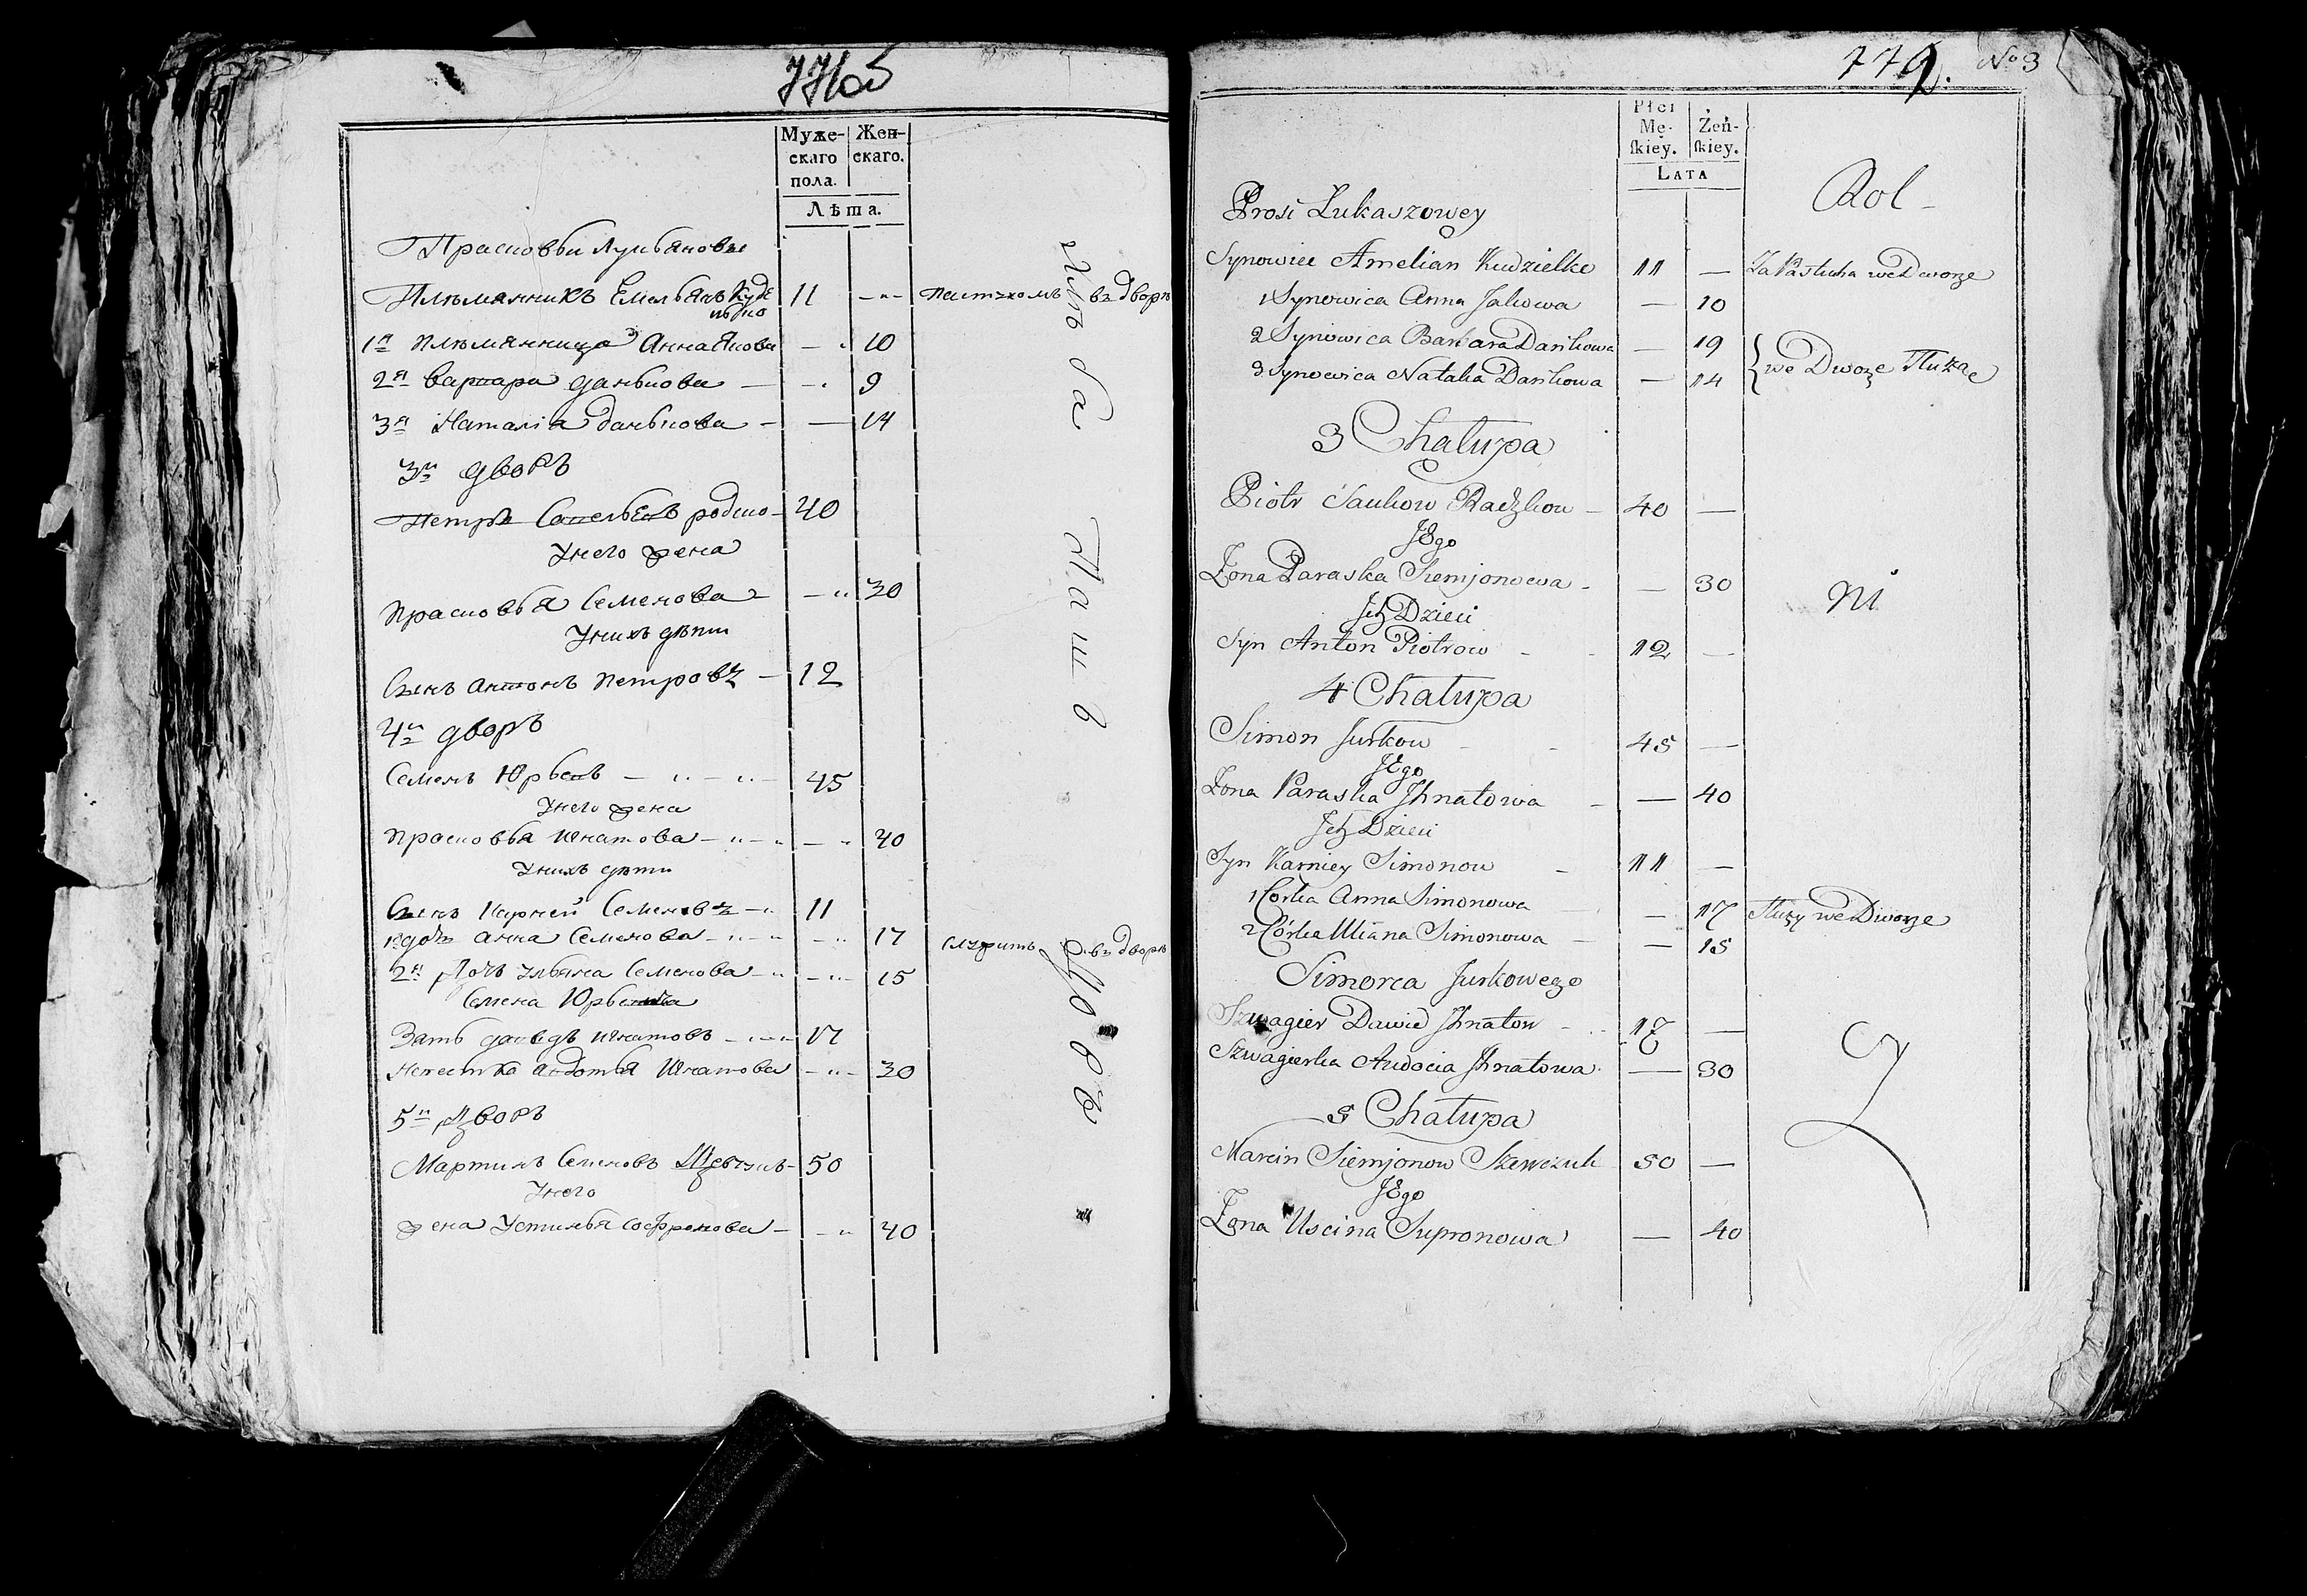 776об
Муже-
скаго
пола.
Жен-
скаго.
Лѣта.
Прасковьи Лукьяновы
Племянникъ Емельянъ Кудѣ
лько 11 — пастухомъ въ дворѣ
1я племянница Анна Якова — 10
2я Варвара Данькова — 9
3я Наталiя Данькова — 14
3й дворъ
Петръ Савельевъ родько 40
Унего жена
Прасковья Семенова — 30
Унихъ дѣти
Сынъ Антонъ Петровъ — 12
4й дворъ
Семенъ Юрьевъ — 45
Унего жена
Прасковья Игнатова — 40
Унихъ дѣти
Сынъ Карней Семеновъ — 11
1я дочь Анна Семенова — 17 служитъ въ дворѣ
2я Дочь Ульяна Семенова — 15
Семена Юрьева
Зять давыдъ Игнатовъ — 17
Невестка Авдотья Игнатова — 30
5й Дворъ
Мартинъ Семеновъ Шевчукъ — 50
Унего
жена Устинья Софронова — 40
779. No 3
Płci
Mę-
skiey.
Żeń-
skiey.
LATA
Prosi Łukaszowey Rol-
Synowiec Amelian Kudzielko 11 — Za Pastucha we Dworze
1 Synowica Anna Jakowa — 10
2 Synowica Barbara Dańkowa — 19
3 Synowica Natalia Dańkowa — 14 we Dworze Służące
3 Chałupa
Piotr Sawkow Radźkow — 40 —
JEgo
Żona Paraska Siemjonowa — 30 ni
Jch Dzieci
Syn Anton Piotrow 12 —
4 Chałupa
Simon Jurkow 45 —
JEgo
Żona Paraska Jhnatowa — 40
Jch Dzieci
Syn Karniey Simonow 11 —
1 Córka Anna Simonowa — 17 Służy we Dworze
2 Córka Uliana Simonowa — 15
Simona Jurkowego
Szwagier Dawid Jhnatow 17 — cy
Szwagierka Audocia Jhnatowa — 30
5 Chałupa
Marcin Siemjonow Szewczuk 50 —
JEgo
Żona Uscina Supronowa — 40